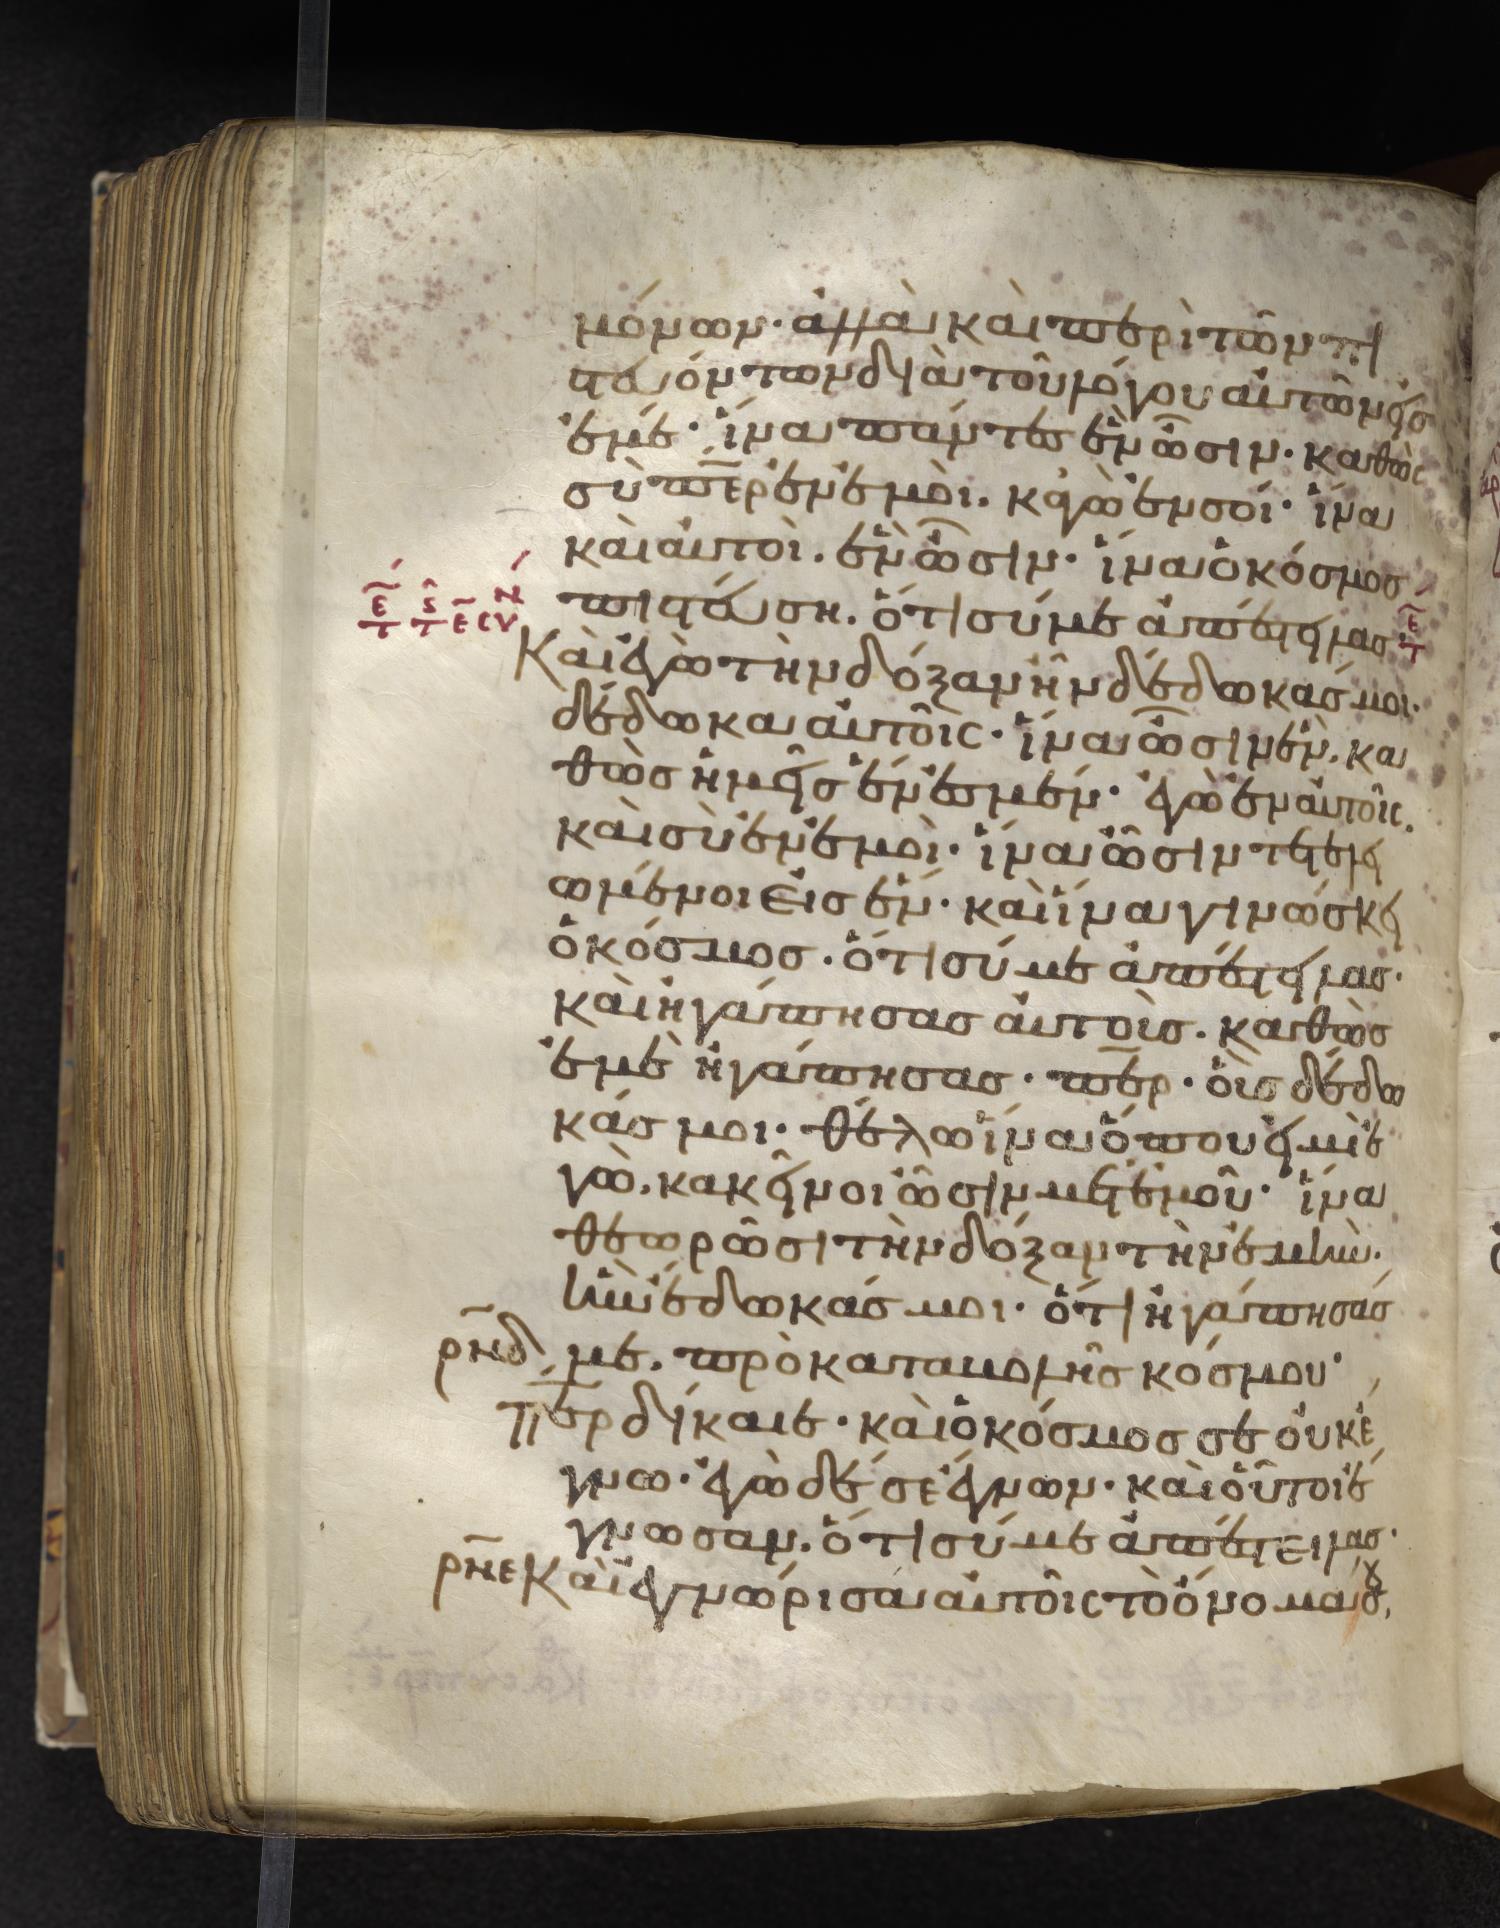 μόνων· ἀλλὰ καὶ περὶ τῶν πι
στευόντων διὰ τοῦ λόγου αὐτῶν εἰς
ἐμέ· ἵνα πάντες ἓν ὦσιν· καθὼς
σὺ π̅ε̅ρ ἐν ἐμοὶ· κἀγὼ ἐν σοί· ἵνα
καὶ αὐτοὶ· ἓν ὦσιν· ἵνα ὁ κόσμος
πιστεύση· ὅτι σύ με ἀπέστειλας·
Καὶ ἐγὼ τὴν δόξαν ἣν δέδωκάς μοι·
δέδωκα αὐτοῖς· ἵνα ὦσιν ἓν· κα
θὼς ἡμεῖς ἕν ἐσμεν· ἐγὼ ἐν αὐτοῖς·
καὶ σὺ ἐν ἐμοὶ· ἵνα ὦσιν τετελει
ωμένοι εἰς ἕν· καὶ ἵνα γινώσκει
ὁ κόσμος· ὅτι σύ με ἀπέστειλας·
καὶ ἠγάπησας αὐτοὺς· καθὼς
ἐμὲ ἠγάπησας· π̅ε̅ρ· οὓς δέδω
κάς μοι· θέλω ἵνα ὅπου εἰμὶ ἐ
γὼ· κακεῖνοι ὦσιν μετ ἐμοῦ· ἵνα
θεωρῶσι τὴν δόξαν τὴν ἐμὴν·
ἣν ἔδωκάς μοι· ὅτι ἠγάπησάς
ρνδ με· πρὸ καταβολῆς κόσμου·
Π̅ε̅ρ δίκαιε· καὶ ὁ κόσμος σε οὐκ ἔ
γνω· ἐγὼ δέ σε ἔγνων· καὶ οὗτοι ἔ
γνωσαν· ὅτι σύ με ἀπέστειλας·
ρνε Καὶ ἐγνώρισα αὐτοῖς τὸ ὄνομα σου,